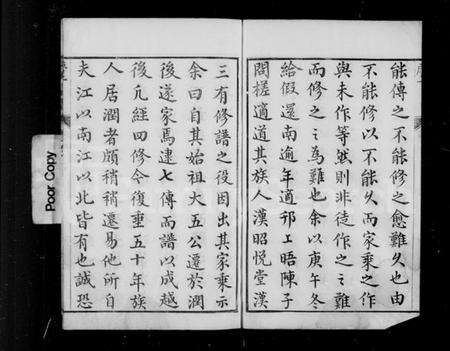 能傳之不能修之愈難久也由
不能修以不能久而家乘之作
與未作等然則非徒作之之難
而修之之為難也余以庚午冬
給假還南逾年適邗工晤陳子
閣槎適道其族人漢昭悅堂漢
三有修譜之役因出其家乘示
余曰自其始祖大五公遷於潤
後遂家焉逮七傳而譜以成越
後凢經四修今復重五十年族
人居潤者頗稍稍遷易他所自
夫江以南江以北皆有也誠恐
Poor Copy